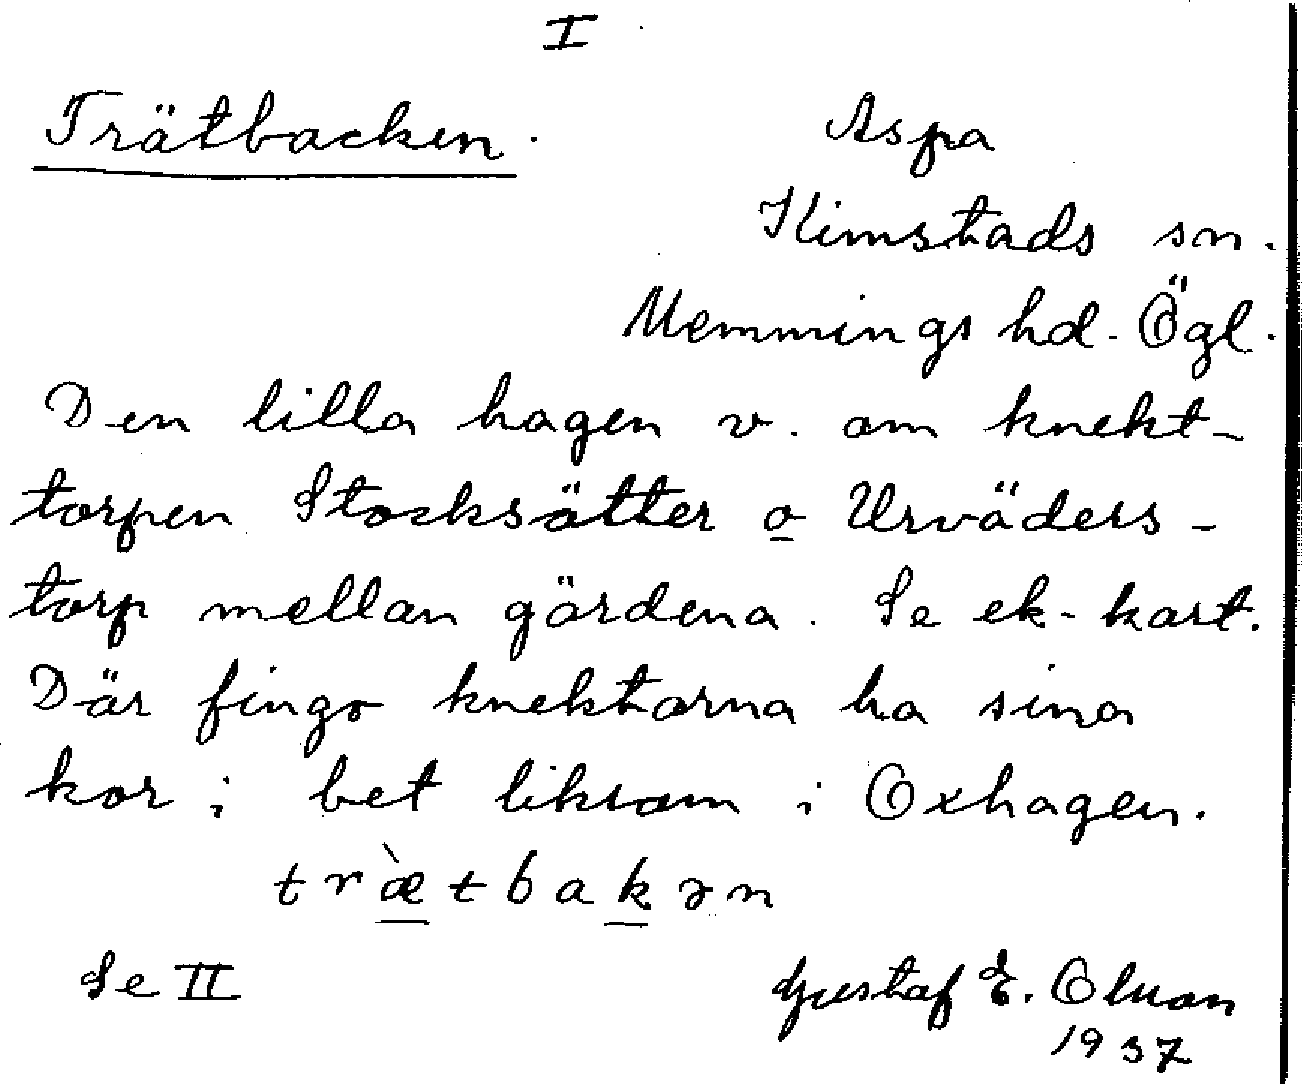 I
Trätbacken.
Aspa
Kimstads sn.
Memmings hd. Ögl.
Den lilla hagen v. om knekt-
torpen Stocksätter o Urväders-
torp mellan gärdena. Se ek-kart.
Där fingo knektarna ha sina
kor i bet liksom i Oxhagen.
træ̀tbakən
Se II
Gustaf E. Olsson
1937